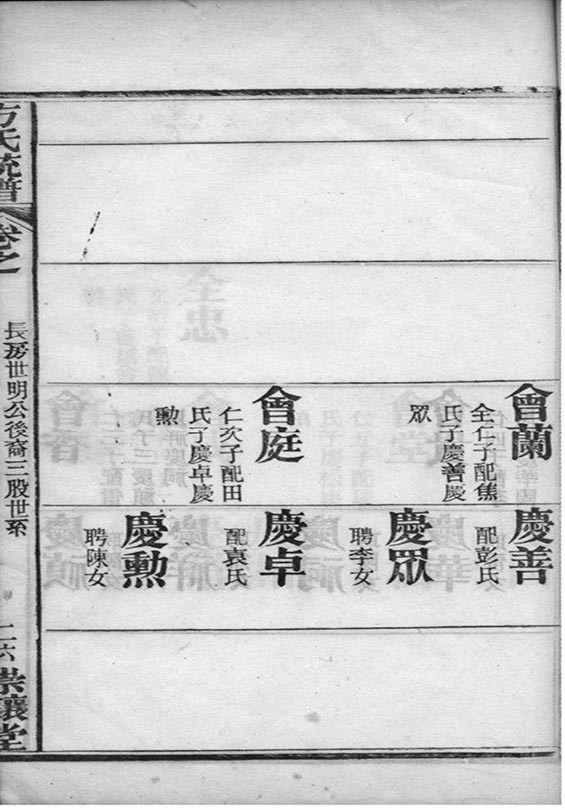 會蘭
全仁子配焦
氏子慶善慶
眾
會庭
仁次子配田
氏子慶卓慶
勲
慶善
配彭氏
慶眾
聘李女
慶卓
配袁氏
慶勲
聘陳女
方氏統譜
卷之
長房世明公後裔三股世系
二六
崇讓堂